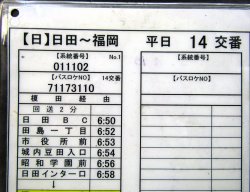 【日】日田～福岡 平日 14 交番
【系統番号】 No.1
011102
【バスロケNO】 14交番
71173110
榎田経由
回送2分
日田BC 6:50
田島一丁目 6:52
市役所前 6:53
城内豆田入口 6:54
昭和学園前 6:56
日田インター口 6:58
↓
【系統番号】
【バスロケNO】